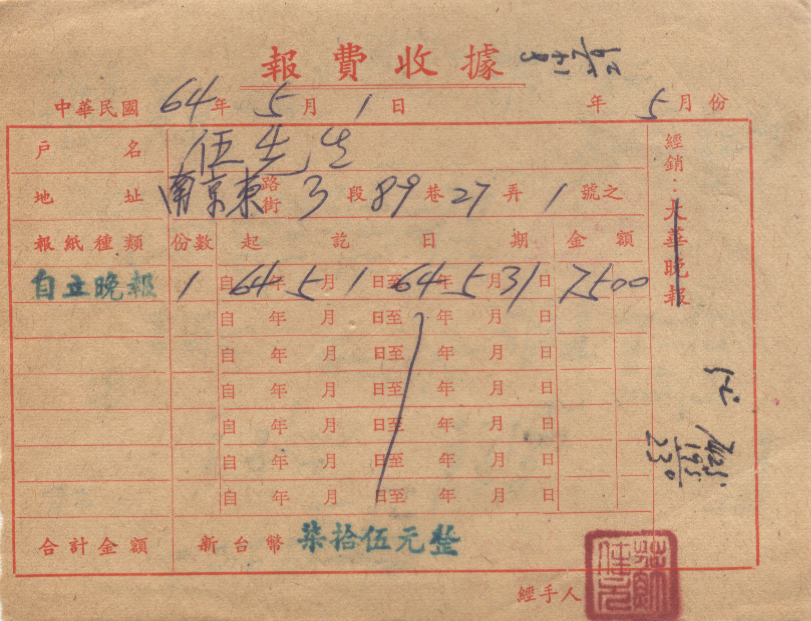 報費收據
中華民國 64年 5月 1日 年 5月份
戶名 伍先生
地址 南京東路街 3段89巷27弄1號之
經銷:大華晚報
報紙種類 份數 起訖日期 金額
自立晚報 1 自64年5月1日至64年5月31日 7500
自 年 月 日至 年 月 日
自 年 月 日至 年 月 日
自 年 月 日至 年 月 日
自 年 月 日至 年 月 日
自 年 月 日至 年 月 日
自 年 月 日至 年 月 日
195
230
合計金額 新台幣 柒拾伍元整
經手人